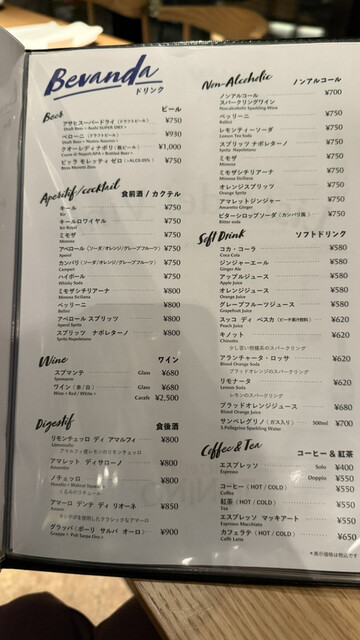 Bevanda
ドリンク
Beer ビール
アサヒスーパードライ（ドラフトビール） ¥750
Draft Beer < Asahi SUPER DRY >
ペローニ（ドラフトビール） ¥930
Draft Beer < Nastro Azzurro >
クオーレ ディ ナポリ（瓶ビール） ¥1,000
Cuore di Napoli APA < Bottled Beer >
ビッラ モレッティ ゼロ ¥750
Birra Moretti Zero
Aperitif / cocktail 食前酒 / カクテル
キール ¥750
Kir
キールロワイヤル ¥750
Kir Royal
ミモザ ¥750
Mimosa
アペロール（ソーダ/オレンジ/グレープフルーツ） ¥750
Aperol
カンパリ（ソーダ/オレンジ/グレープフルーツ） ¥750
Campari
ハイボール ¥750
Whisky Soda
ミモザシチリアーナ ¥800
Mimosa Siciliana
ベッリーニ ¥800
Bellini
アペロール スプリッツ ¥800
Aperol Spritz
スプリッツ ナポレターノ ¥800
Spritz Napoletano
Wine ワイン
スプマンテ Glass ¥680
Spumante
ワイン（赤 / 白） Glass ¥680
Wine < Red / White > Carafe ¥2,500
Digestif 食後酒
リモンチェッロ ディ アマルフィ ¥800
Limoncello
アマルフィ産レモンのリモンチェッロ
アマレット ディサローノ ¥800
Amaretto
ノチェッロ ¥800
くるみのリキュール
アマーロ デンテ ディ リオーネ ¥850
Amaro
グラッパ（ポーリ サルパ オーロ） ¥900
Grappa < Poli Sarpa Oro >
Non-Alcoholic ノンアルコール
ノンアルコール ¥700
スパークリングワイン
Nonalcoholic Sparkling Wine
ベッリーニ ¥750
Bellini
レモンティーソーダ ¥750
Lemon Tea Soda
スプリッツ ナポレターノ ¥750
Spritz Napoletano
ミモザ ¥750
Mimosa
ミモザシチリアーナ ¥750
Mimosa Siciliana
オレンジスプリッツ ¥750
Orange Spritz
アマレットジンジャー ¥750
Amaretto Ginger
ビターシロップソーダ（カンパリ風） ¥750
Bitter soda
Soft Drink ソフトドリンク
コカ・コーラ ¥580
Coca Cola
ジンジャーエール ¥580
Ginger Ale
アップルジュース ¥580
Apple Juice
オレンジジュース ¥580
Orange Juice
グレープフルーツジュース ¥580
Grapefruit Juice
スッコ ディ ペスカ（ピーチ果汁飲料） ¥620
Peach Juice
キノット ¥620
Chinotto
少し苦い柑橘系のスパークリング
アランチャータ・ロッサ ¥620
Blood Orange Soda
ブラッドオレンジのスパークリング
リモナータ ¥620
Lemon Soda
レモンのスパークリング
ブラッドオレンジジュース ¥680
Blood Orange Juice
サンペレグリノ（ガス入り） 500ml ¥700
S.Pellegrino Sparkling Water
Coffee & Tea コーヒー & 紅茶
エスプレッソ Solo ¥400
Espresso Doppio ¥550
コーヒー（HOT / COLD） ¥550
Coffee
紅茶（HOT / COLD） ¥550
Tea
エスプレッソ マッキアート ¥550
Espresso Macchiato
カフェラテ（HOT / COLD） ¥650
Caffe Latte
*表示価格は税込です。